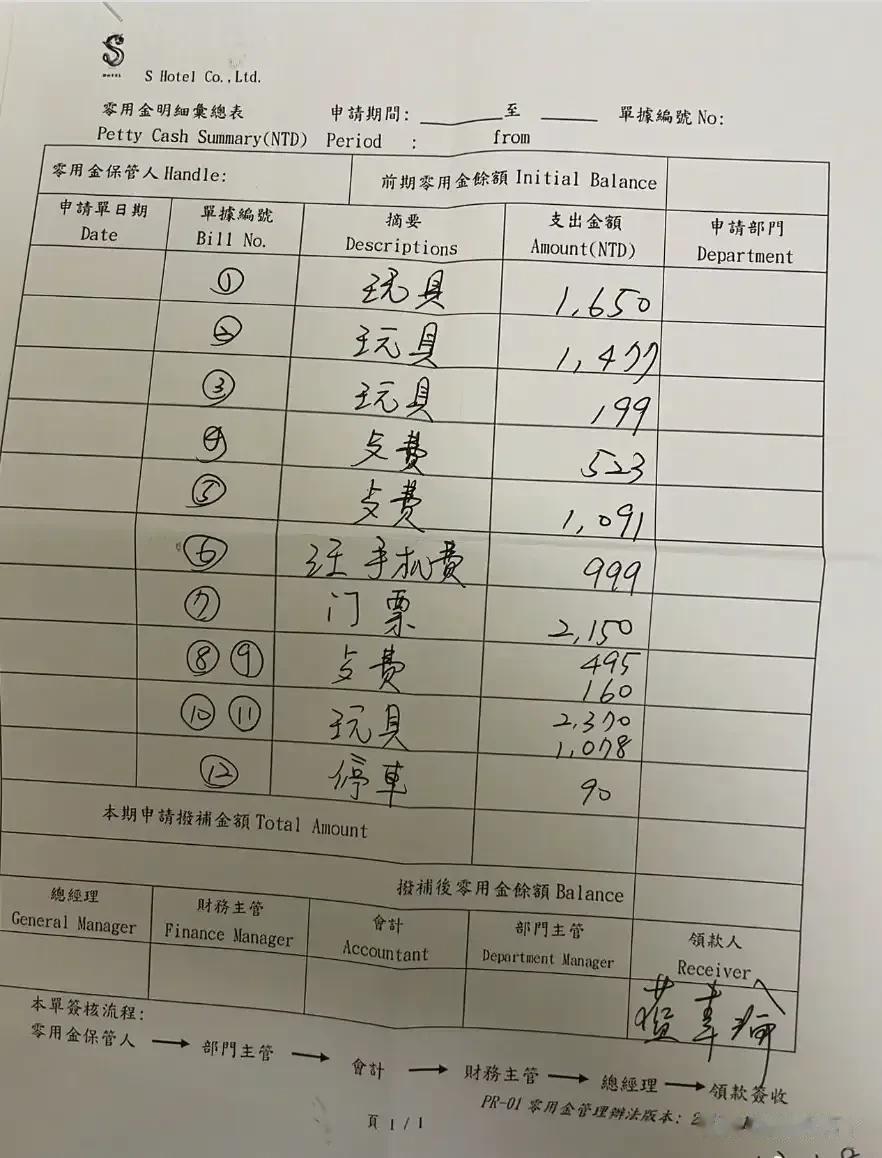 S
HOTEL
S Hotel Co.,Ltd.
零用金明細彙總表 申請期間: ______至 ______ 單據編號 No:
Petty Cash Summary(NTD) Period : from
零用金保管人 Handle: 前期零用金餘額 Initial Balance
申請單日期 單據編號 摘要 支出金額 申請部門
Date Bill No. Descriptions Amount(NTD) Department
① 玩具 1,650
② 玩具 1,477
③ 玩具 199
④ 费 523
⑤ 费 1,091
⑥ 汪 手机費 999
⑦ 门票 2,150
⑧ ⑨ 費 495
160
⑩ ⑪ 玩具 2,370
1,078
⑫ 停車 90
本期申請撥補金額 Total Amount
撥補後零用金餘額 Balance
總經理 財務主管 會計 部門主管 領款人
General Manager Finance Manager Accountant Department Manager Receiver
本單簽核流程:
零用金保管人 → 部門主管 → 會計 → 財務主管 → 總經理 → 領款簽收
PR-01 零用金管理辦法版本: 2
頁 1 / 1